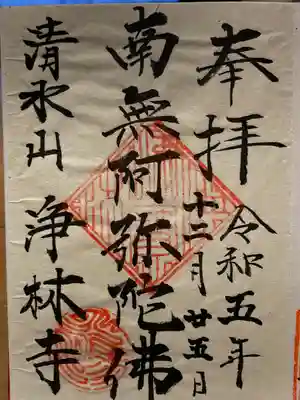 奉拝
令和五年
十二月廿五日
南無阿弥陀佛
清水山
浄林寺